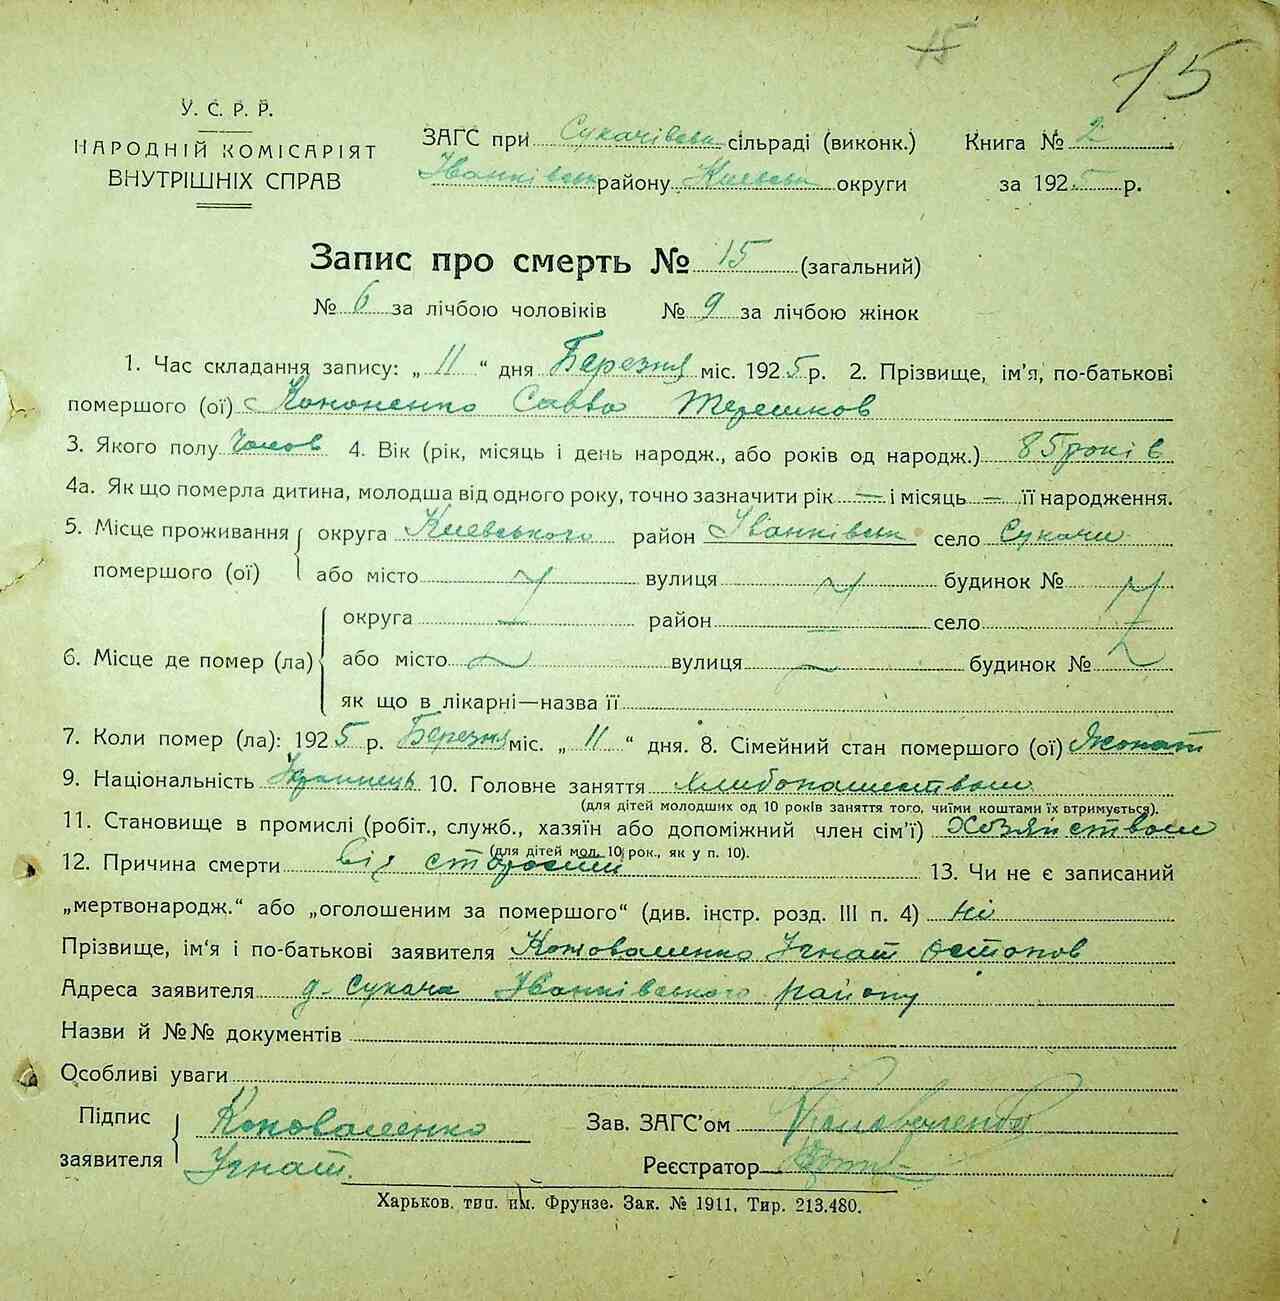 15
15
У. С. Р. Р.
НАРОДНІЙ КОМІСАРІЯТ
ВНУТРІШНІХ СПРАВ
ЗАГС при Сукачівськ сільраді (виконк.) Книга № 2
Іванківськ району Киевськ округи за 1925 р.
Запис про смерть № 15 (загальний)
№ 6 за лічбою чоловіків № 9 за лічбою жінок
1. Час складання запису: „ 11 “ дня Березня міс. 1925 р. 2. Прізвище, ім'я, по-батькові
помершого (ої) Кононенко Савва Терешков
3. Якого полу Чолов 4. Вік (рік, місяць і день народж., або років од народж.) 85 років
4а. Як що померла дитина, молодша від одного року, точно зазначити рік — і місяць — її народження.
5. Місце проживання округа Киевського район Іванківськ село Сукачи
помершого (ої) або місто вулиця будинок №
округа район село
6. Місце де помер (ла) або місто вулиця будинок №
як що в лікарні—назва її
7. Коли помер (ла): 1925 р. Березня міс. „ 11 “ дня. 8. Сімейний стан помершого (ої) Жонат
9. Національність Украинець 10. Головне заняття Хлибопашеством
(для дітей молодших од 10 років заняття того, чиїми коштами їх втримується).
11. Становище в промислі (робіт., служб., хазяїн або допоміжний член сім'ї) Хозяйством
(для дітей мол. 10 рок., як у п. 10).
12. Причина смерти від старости 13. Чи не є записаний
„мертвонародж.“ або „оголошеним за помершого“ (див. інстр. розд. III п. 4) ні
Прізвище, ім'я і по-батькові заявителя Коноваленко Ігнат Остапов
Адреса заявителя д. Сукача Іванківського району
Назви й №№ документів
Особливі уваги
Підпис Коноваленко Зав. ЗАГС'ом Коноваленко
заявителя Ігнат. Реєстратор
Харьков, тип. им. Фрунзе. Зак. № 1911, Тир. 213.480.